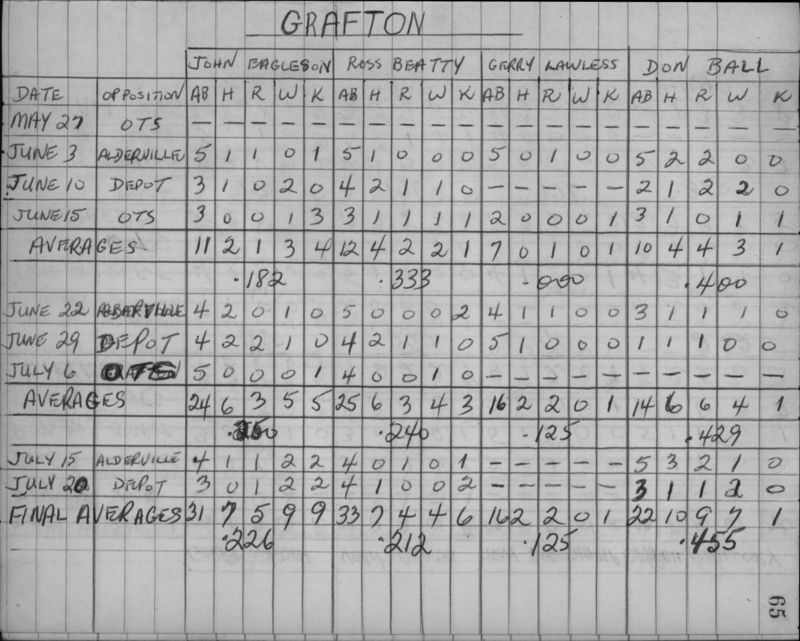 GRAFTON
JOHN EAGLESON ROSS BEATTY GERRY LAWLESS DON BALL
DATE OPPOSITION AB H R W K AB H R W K AB H R W K AB H R W K
MAY 27 OTS — — — — — — — — — — — — — — — — — — — —
JUNE 3 ALDERVILLE 5 1 1 0 1 5 1 0 0 0 5 0 1 0 0 5 2 2 0 0
JUNE 10 DEPOT 3 1 0 2 0 4 2 1 1 0 — — — — — 2 1 2 2 0
JUNE 15 OTS 3 0 0 1 3 3 1 1 1 1 2 0 0 0 1 3 1 0 1 1
AVERAGES 11 2 1 3 4 12 4 2 2 1 7 0 1 0 1 10 4 4 3 1
.182 .333 .000 .400
JUNE 22 4 2 0 1 0 5 0 0 0 2 4 1 1 0 0 3 1 1 1 0
JUNE 29 DEPOT 4 2 2 1 0 4 2 1 1 0 5 1 0 0 0 1 1 1 0 0
JULY 6 5 0 0 0 1 4 0 0 1 0 — — — — — — — — — —
AVERAGES 24 6 3 5 5 25 6 3 4 3 16 2 2 0 1 14 6 6 4 1
.250 .240 .125 .429
JULY 15 ALDERVILLE 4 1 1 2 2 4 0 1 0 1 — — — — — 5 3 2 1 0
JULY 20 DEPOT 3 0 1 2 2 4 1 0 0 2 — — — — — 3 1 1 2 0
FINAL AVERAGES 31 7 5 9 9 33 7 4 4 6 16 2 2 0 1 22 10 9 7 1
.226 .212 .125 .455
65